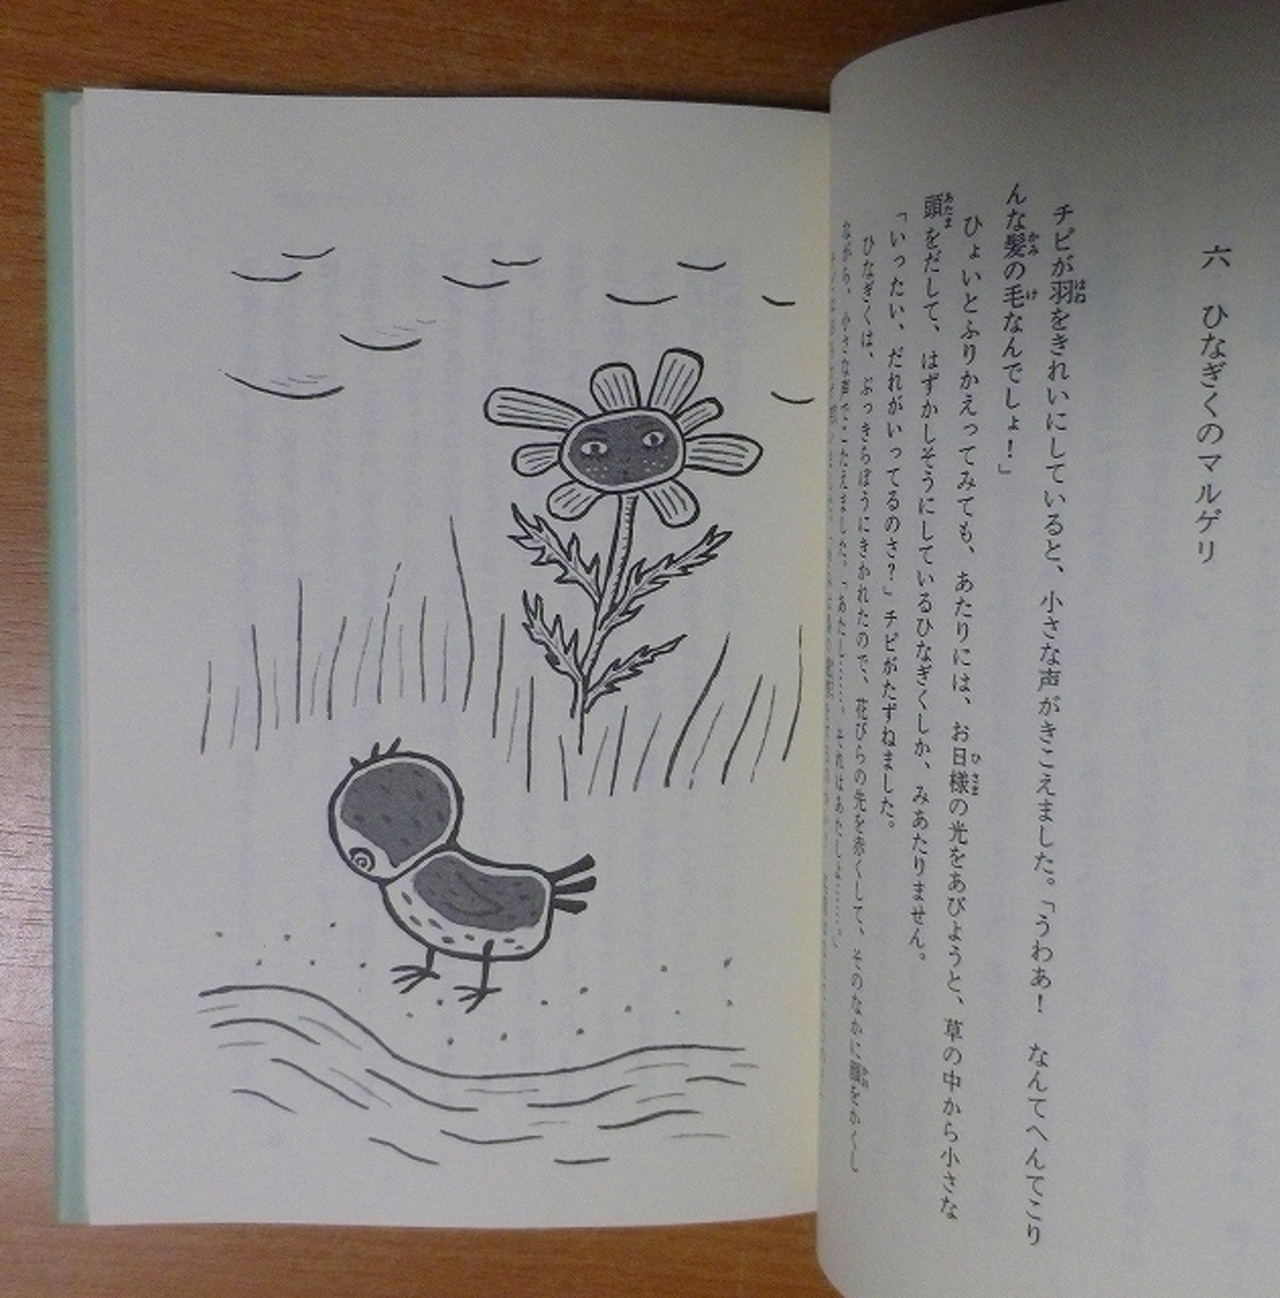 六　ひなぎくのマルゲリ
チピが羽をきれいにしていると、小さな声がきこえました。「うわあ！　なんてへんてこり
んな髪の毛なんでしょ！」
ひょいとふりかえってみても、あたりには、お日様の光をあびようと、草の中から小さな
頭をだして、はずかしそうにしているひなぎくしか、みあたりません。
「いったい、だれがいってるのさ？」チピがたずねました。
ひなぎくは、ぶっきらぼうにきかれたので、花びらの先を赤くして、そのなかに顔をかくし
ながら、小さな声でこたえました。「あたし……。それはあたしよ……。」